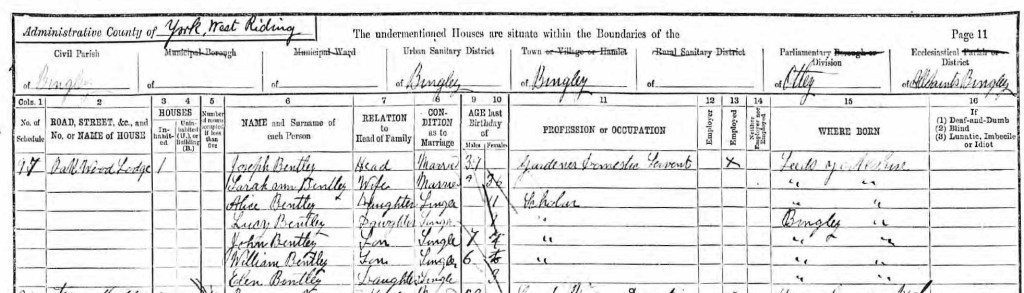 Administrative County of York, West Riding The undermentioned Houses are situate within the Boundaries of the Page 11
Civil Parish Municipal Borough Municipal Ward Urban Sanitary District Town or Village or Hamlet Rural Sanitary District Parliamentary Borough or Division Ecclesiastical Parish or District
of Bingley of of of Bingley of Bingley of of Otley of All Saints Bingley
Cols. 1 2 3 4 5 6 7 8 9 10 11 12 13 14 15 16
No. of Schedule ROAD, STREET, &c., and No. or NAME of HOUSE HOUSES Inhabited Uninhabited (U.), or Building (B.) Number of rooms occupied if less than five NAME and Surname of each Person RELATION to Head of Family CONDITION as to Marriage AGE last Birthday of Males Females PROFESSION or OCCUPATION Employer Employed Neither Employer nor Employed WHERE BORN If (1) Deaf-and-Dumb (2) Blind (3) Lunatic, Imbecile or Idiot
97 Oak Wood Lodge 1 Joseph Bentley Head Married Gardener Domestic Servant X Leeds Yorkshire
Sarah ann Bentley Wife Married " "
Alice Bentley Daughter Single 11 Scholar " "
Lucy Bentley Daughter Single " Bingley "
John Bentley Son Single 7 " " "
William Bentley Son Single 6 " " "
Elen Bentley Daughter Single " "